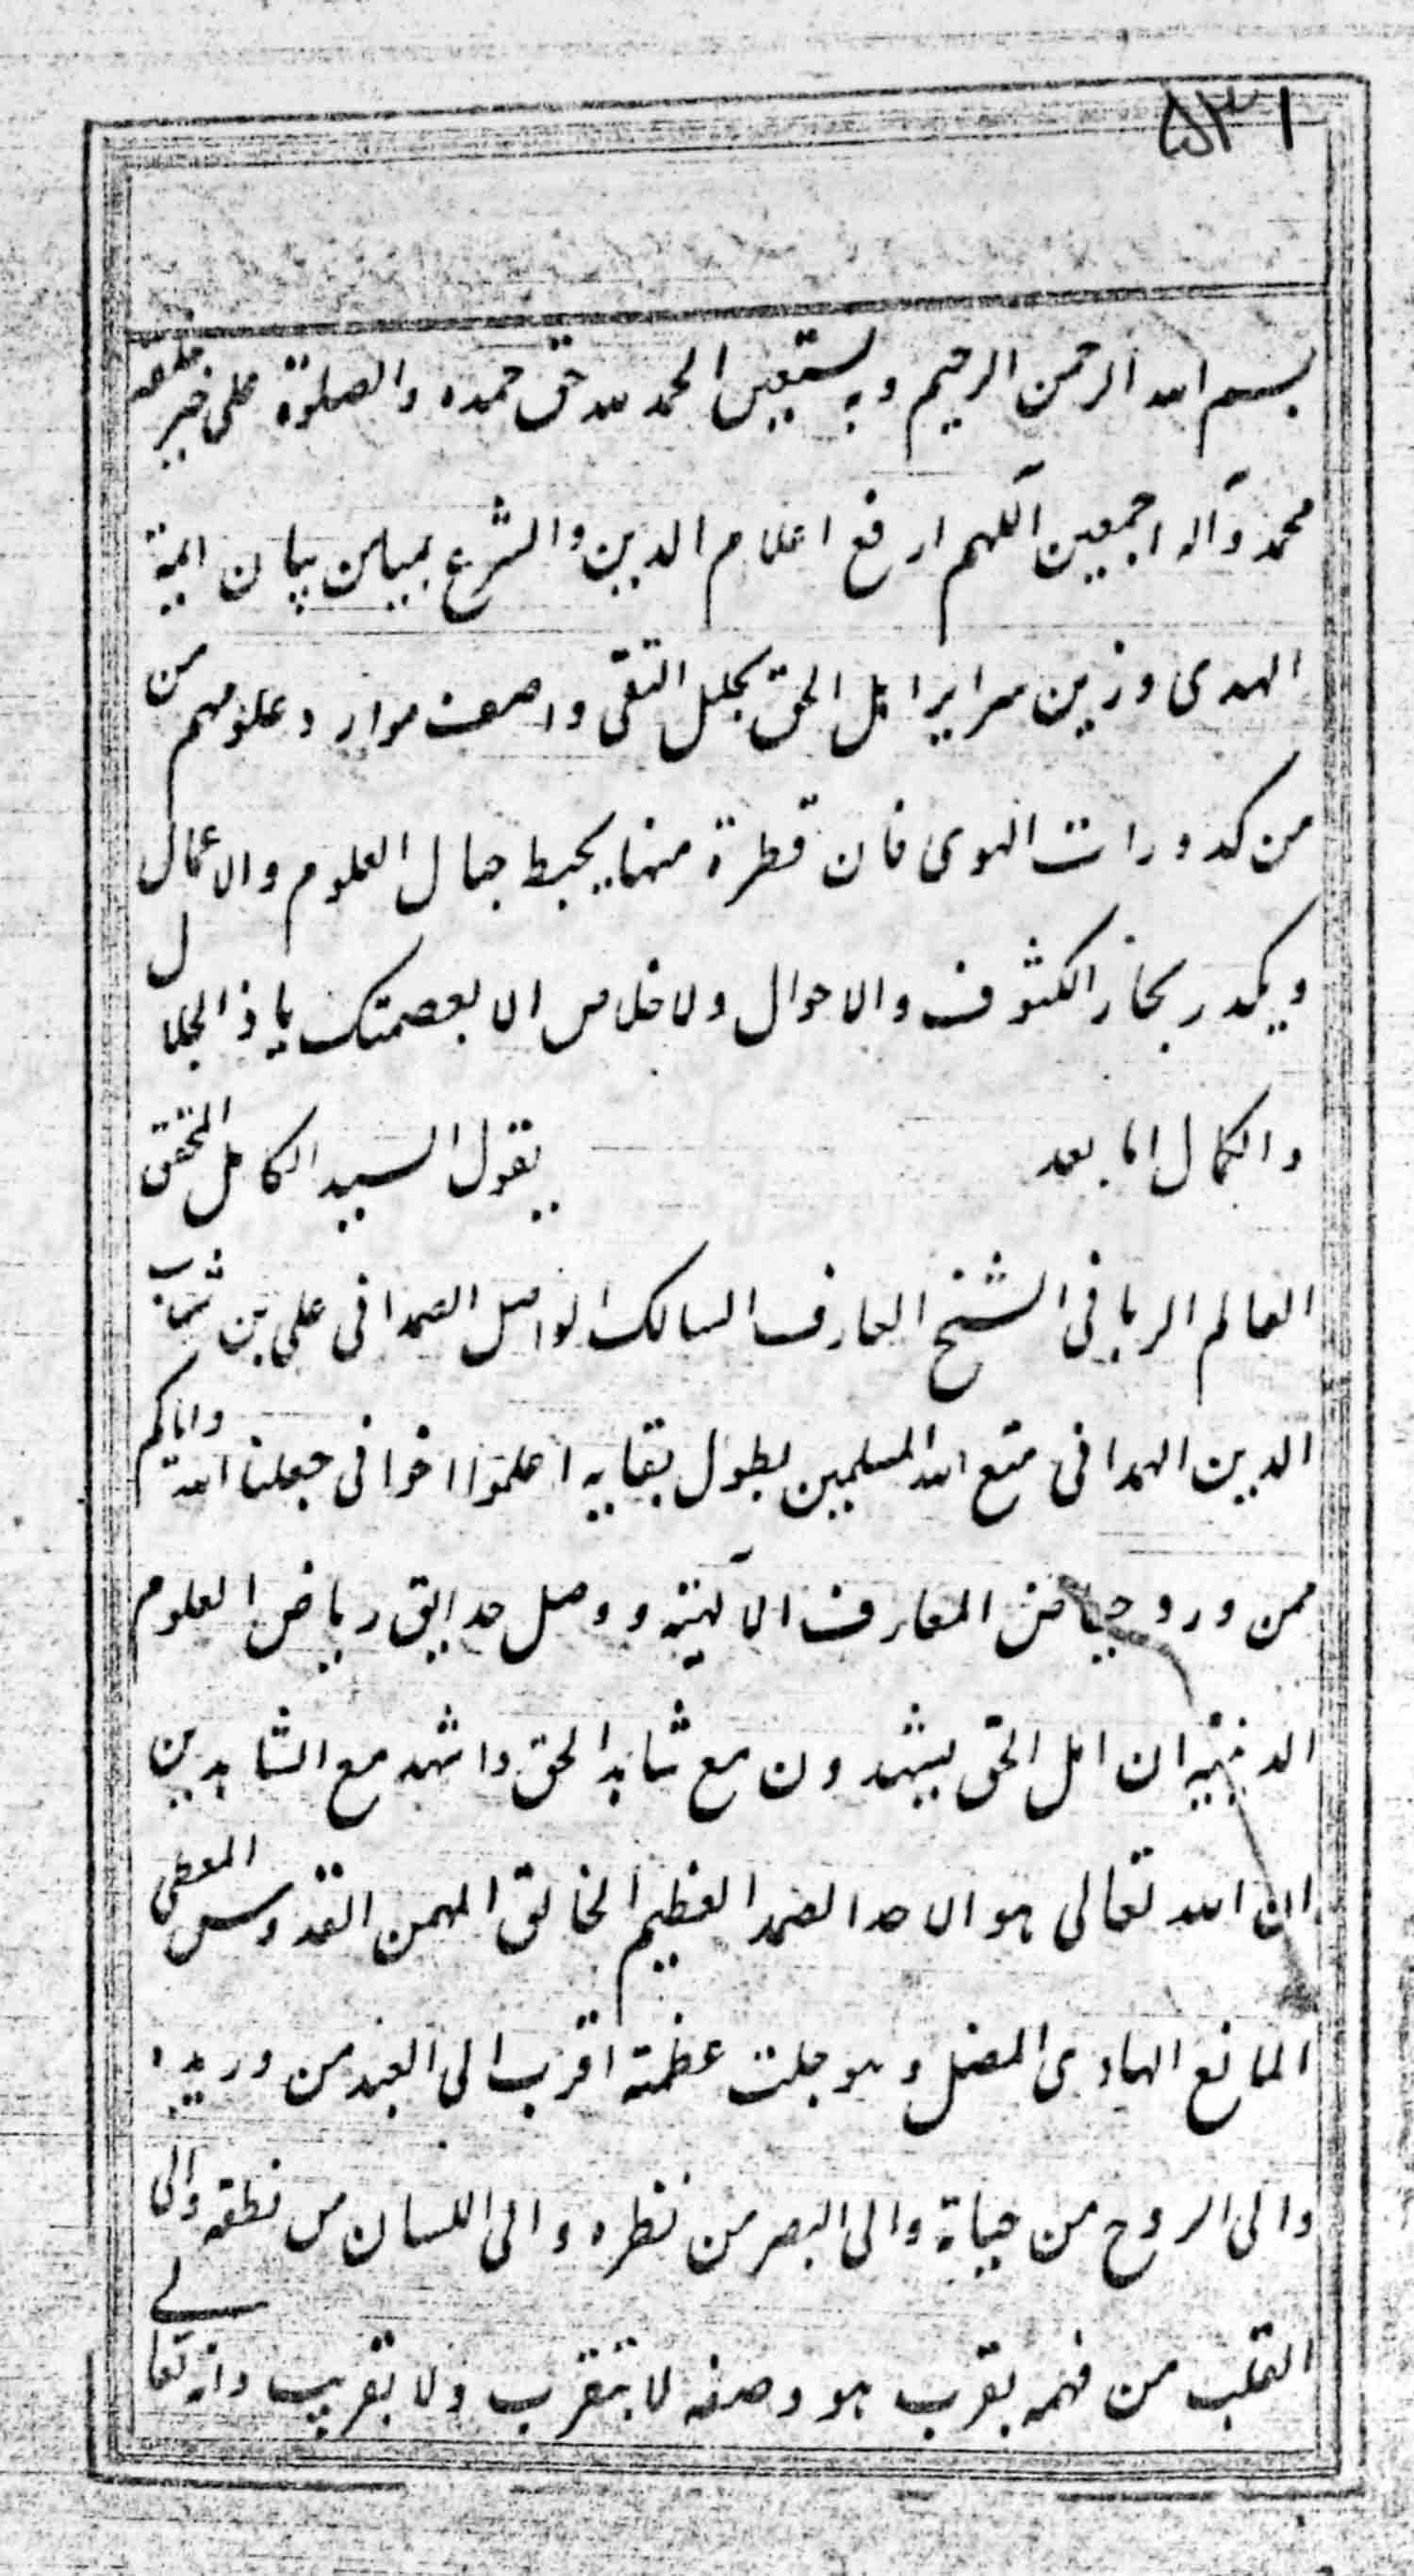 ۵۳۱
بسم الله الرحمن الرحیم وبه نستعین الحمد لله حق حمده والصلوة علی خیر خلقه
محمد وآله اجمعین اللهم ارفع اعلام الدین والشرع بمیامن بیان ایمة
الهدی وزین سرایر اهل الحق بحلل التقی واصعف موارد علومهم من
من کدورات الهوی فان قطرة منها یحبط جبال العلوم والاعمال
ویکدر بحار الکشوف والاحوال ولا خلاص الا بعصمتک یا ذا الجلال
والکمال اما بعد یقول السید الکامل المحقق
العالم الربانی الشیخ العارف السالک الواصل الصمدانی علی بن شهاب
الدین الهمدانی متع الله المسلمین بطول بقایه اعلموا اخوانی جعلنا الله وایاکم
ممن ورد حیاض المعارف الآلهیّه ووصل حدایق ریاض العلوم
الدینیّه ان اهل الحق یشهدون مع شاهد الحق واشهد مع الشاهدین
ان الله تعالی هو الاحد الصمد العظیم الخالق المهمن القدوس المعطی
المانع الهادی المضل وهو جلت عظمته اقرب الی العبد من وریده
والی الروح من حیاة والی البصر من نظره والی اللسان من نطقه والی
القلب من فهمه بقرب هو وصفه لا بتقرب ولا بقریب وانه تعالی